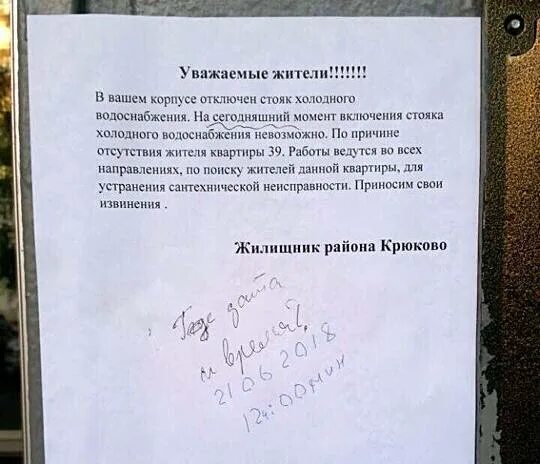 Уважаемые жители!!!!!!!
В вашем корпусе отключен стояк холодного
водоснабжения. На сегодняшний момент включения стояка
холодного водоснабжения невозможно. По причине
отсутствия жителя квартиры 39. Работы ведутся во всех
направлениях, по поиску жителей данной квартиры, для
устранения сантехнической неисправности. Приносим свои
извинения .
Жилищник района Крюково
Где дата
и время?
21 06 2018
12ч:00мин